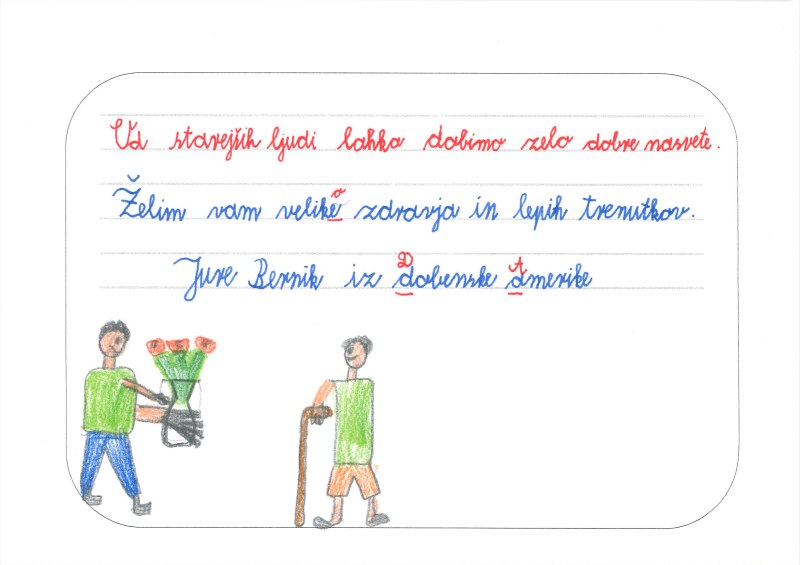 Od starejših ljudi lahko dobimo zelo dobre nasvete.
o
Želim vam velike zdravja in lepih trenutkov.
D A
Jure Bernik iz dobenske amerike